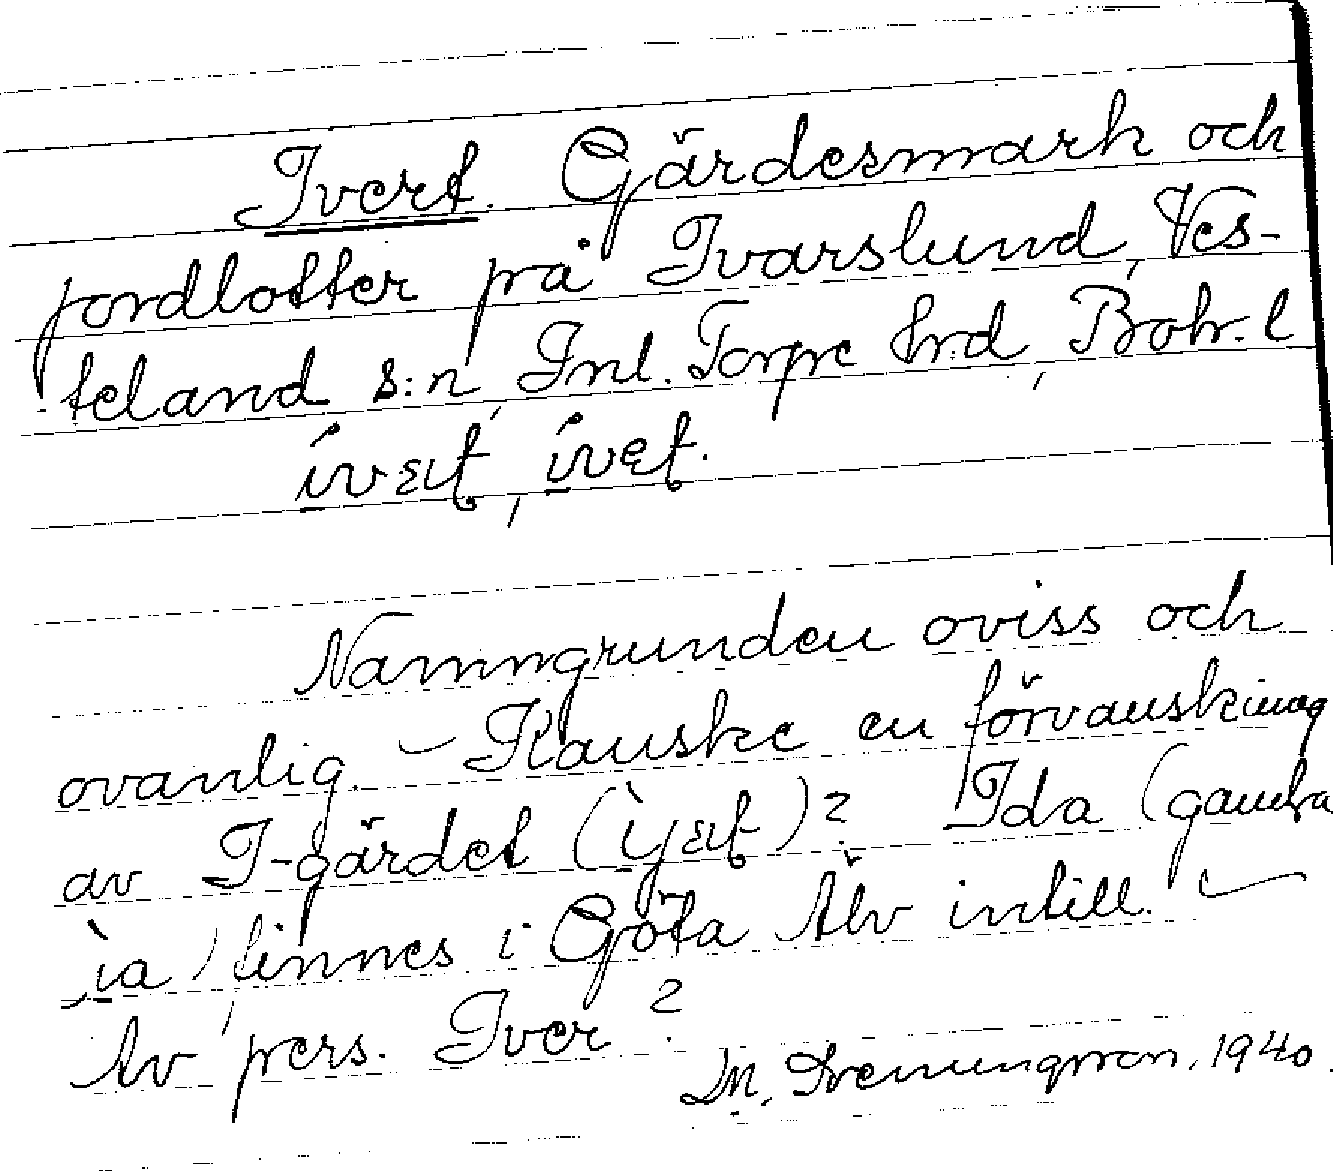 Ivert. Gärdesmark och
jordlotter på Ivarslund, Ves-
teland s:n, Inl. Torpe hrd, Boh. l
ívɛꞮt, ívet.
Namngrunden oviss och
ovanlig. – Kanske en förvanskning
av I-gärdet (ìjɛꞮt)? Ida (gamla
ìa) finnes i Göta Älv intill. –
Av pers. Iver?
M. 1940.